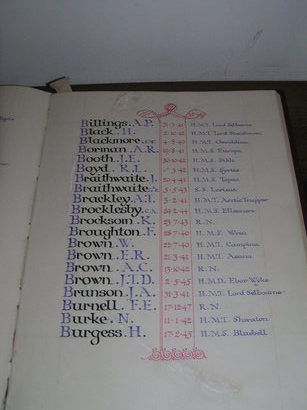 Billings. A.P. 31·3·41 H.M.T. Lord Selborne
Black. H. 2·10·42 H.M.T. Lord Stonehaven
Blackmore. 4·5·40 H.M.T. Gaulsilian
Borman. A.R. H.M.S. Europa
Booth. J.E. H.M.S. Sikh
Boyd. R.L. H.M.S.
Braithwaite. J. H.M.S.
Braithwaite. 3·5·43 S.S. Lorinus
Brackley. A.T. 3·2·41 H.M.T. Arctic Trapper
Brocklesby. H.M.S. Ellesmere
Brockson. R. 23·7·43 R.N.
Broughton. F. H.M.S. Wren
Brown. W. 22·7·40 H.M.T. Campina
Brown. E.R. 21·3·42 H.M.T. Asama
Brown. A.C. 13·10·42 R.N.
Brown. J.T.D. 2·5·45 H.M.D. Ebor Wyke
Brunson. J.A. 31·3·41 H.M.T. Lord Selbourne
Burnell. F.E. 17·12·47 R.N.
Burke. N. 11·1·42 H.M.T. Sheraton
Burgess. H. 17·2·45 H.M.S. Bluebell